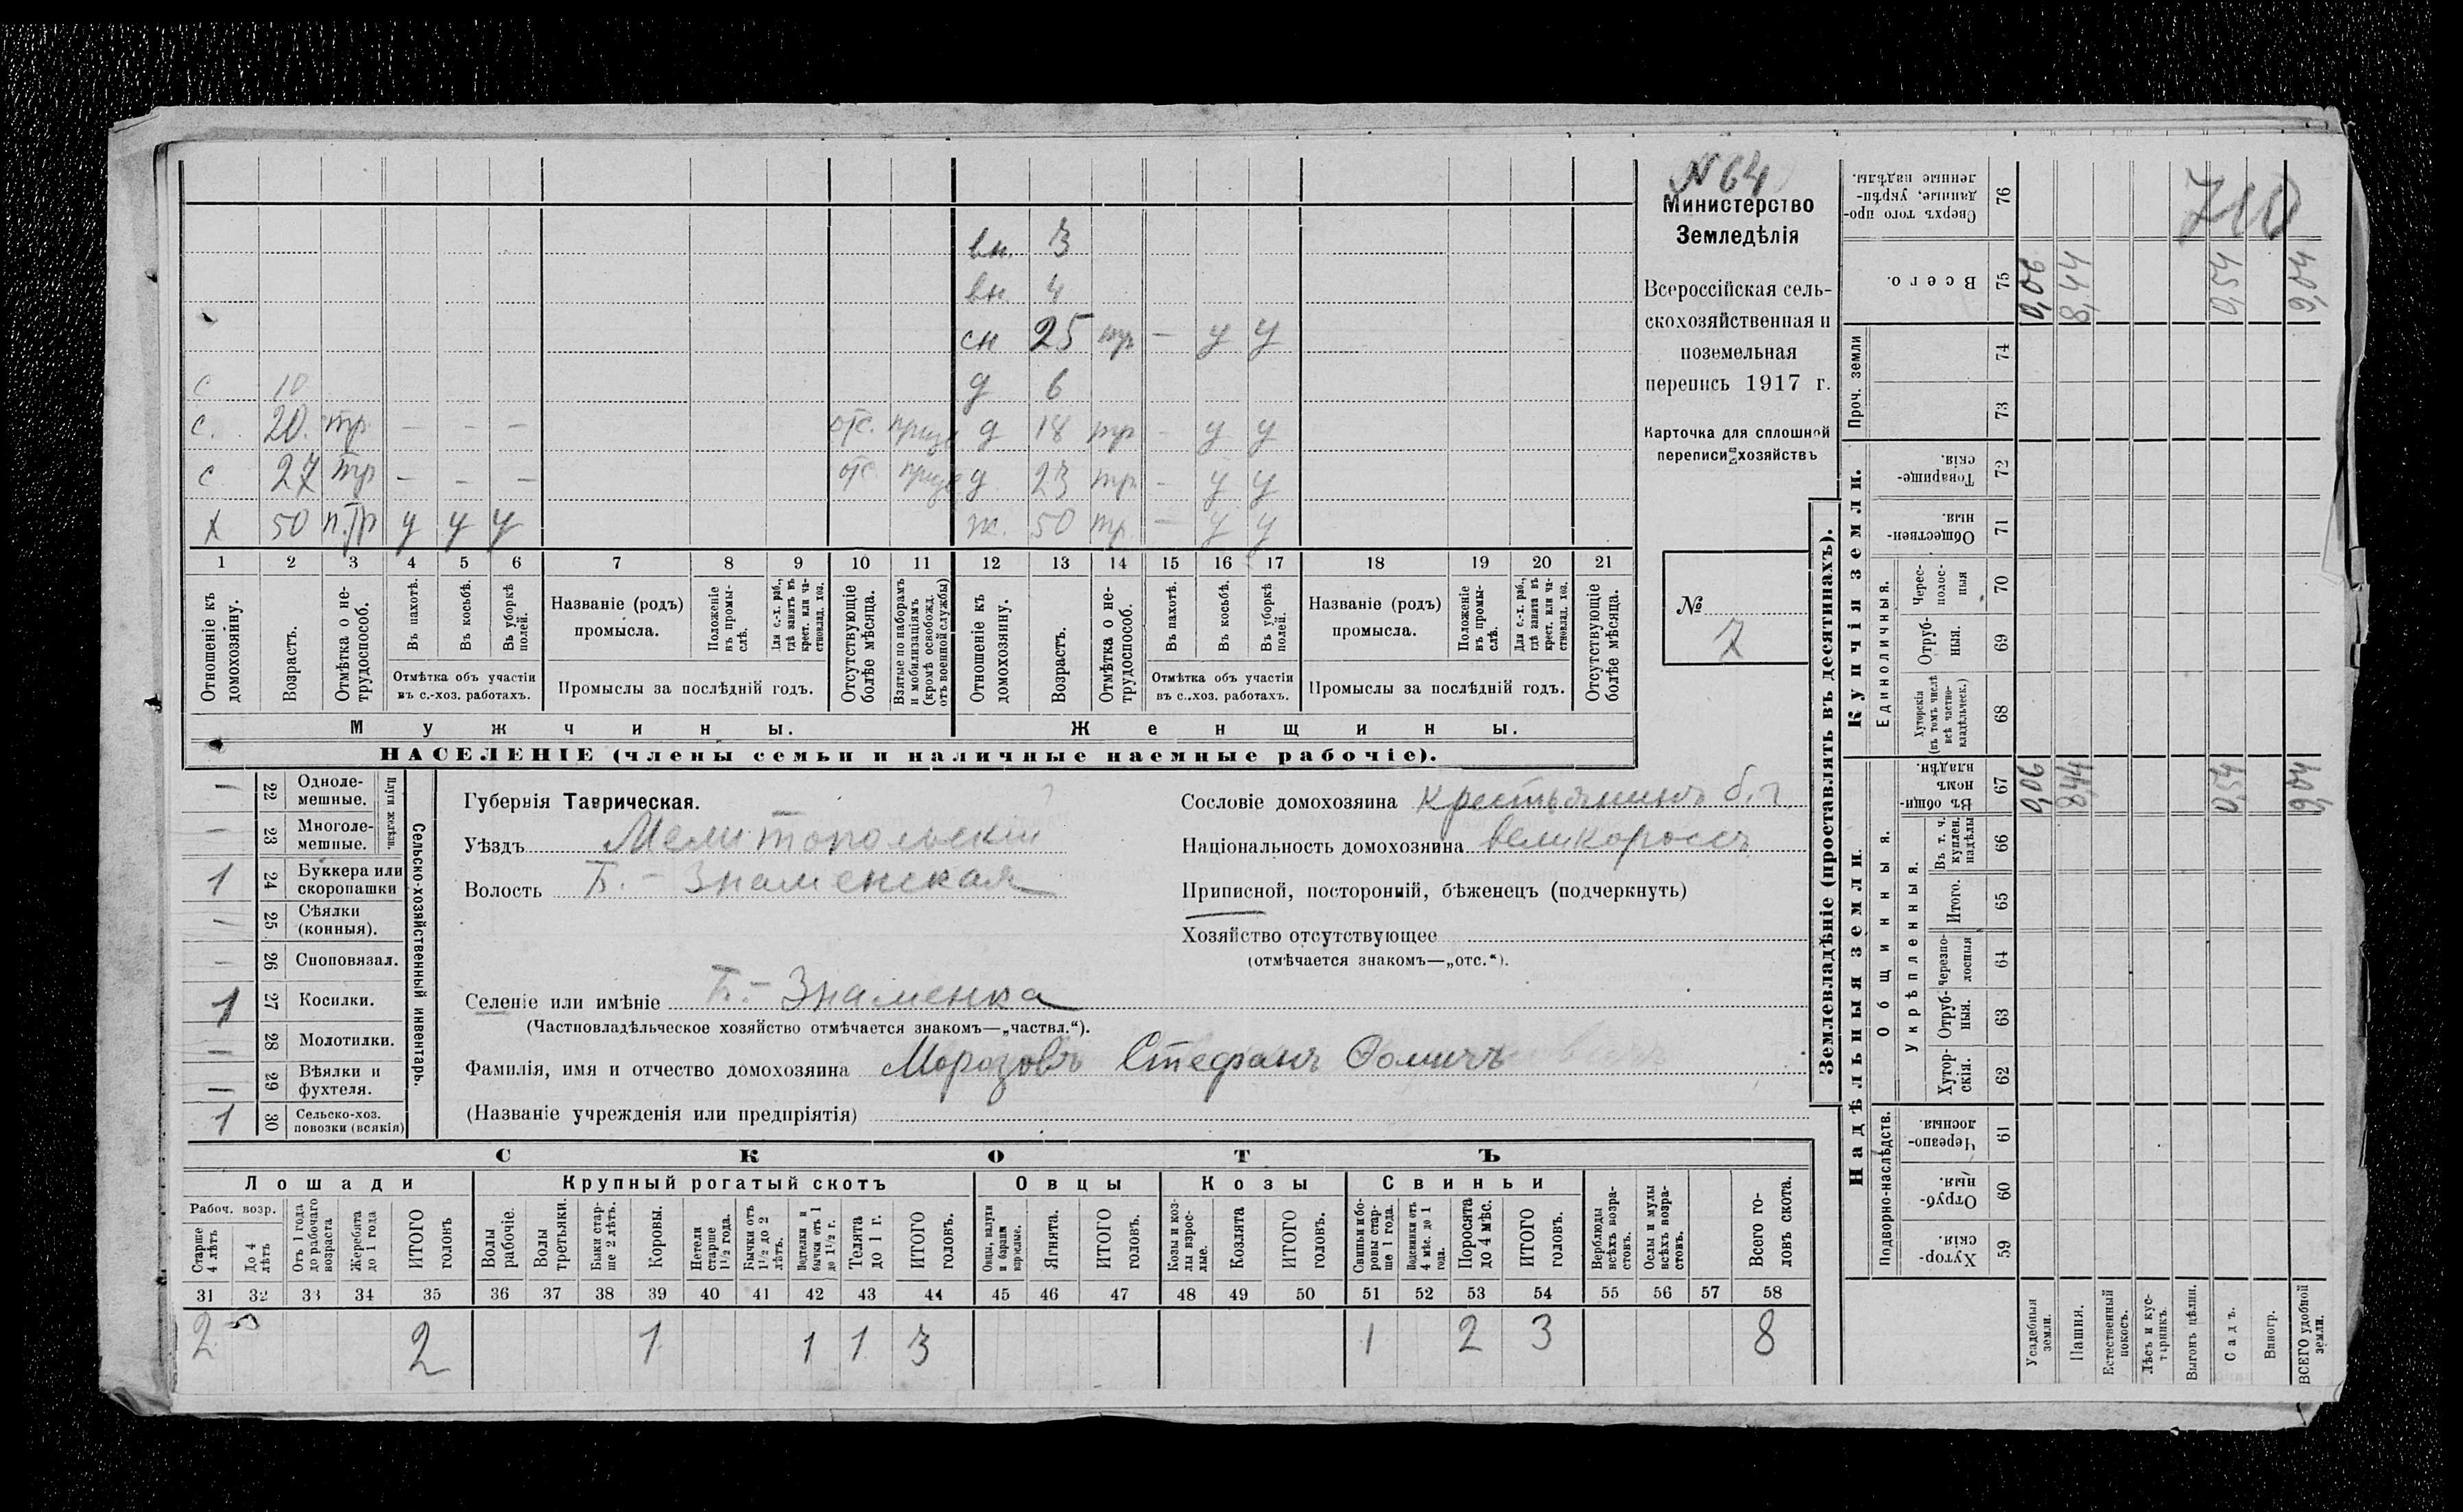 N 64
Министерство
Земледѣлія
Всероссійская сель-
скохозяйственная и
поземельная
перепись 1917 г.
Карточка для сплошной
переписи хозяйствъ
№
7
вн. 3
вн 4
сн 25 тр — у у
с 10 д 6
с. 20. тр — — — отс. призв д 18 тр - у у
с 27 тр — — — отс призв д. 23 тр - у у
х 50 п.тр у у у ж. 50 тр. — у у
1 2 3 4 5 6 7 8 9 10 11 12 13 14 15 16 17 18 19 20 21
Отношеніе къ домохозяину.
Возрастъ.
Отмѣтка о не-трудоспособ.
Въ пахотѣ.
Въ косьбѣ.
Въ уборкѣ полей.
Отмѣтка объ участіи
въ с.-хоз. работахъ.
Названіе (родъ)
промысла.
Положеніе въ промы-слѣ.
Для с.-х. раб., гдѣ занятъ въ крест. или ча-стновлад. хоз.
Промыслы за послѣдній годъ.
Отсутствующіе болѣе мѣсяца.
Взятые по наборамъ и мобилизаціямъ (кромѣ освобожд. отъ военной службы)
Отношеніе къ домохозяину.
Возрастъ.
Отмѣтка о не-трудоспособ.
Въ пахотѣ.
Въ косьбѣ.
Въ уборкѣ полей.
Отмѣтка объ участіи
въ с..хоз. работахъ.
Названіе (родъ)
промысла.
Положеніе въ промы-слѣ.
Для с.-х. раб., гдѣ занята въ крест. или ча-стновлад. хоз.
Промыслы за послѣдній годъ.
Отсутствующіе болѣе мѣсяца.
Мужчины.
Женщины.
НАСЕЛЕНІЕ (члены семьи и наличные наемные рабочіе).
— 22 Одноле-мешные.
— 23 Многоле-мешные.
Плуги желѣзн.
1 24 Буккера или скоропашки
— 25 Сѣялки (конныя).
— 26 Сноповязал.
1 27 Косилки.
— 28 Молотилки.
— 29 Вѣялки и фухтеля.
1 30 Сельско-хоз. повозки (всякія)
Сельско-хозяйственный инвентарь.
Губернія Таврическая.
Уѣздъ Мелитопольскій
Волость Б.- Знаменская
Селеніе или имѣніе Б.- Знаменка
(Частновладѣльческое хозяйство отмѣчается знакомъ—„частвл.“).
Фамилія, имя и отчество домохозяина Морозовъ Стефанъ Фомичъ
(Названіе учрежденія или предпріятія)
Сословіе домохозяина крестьянинъ б.г.
Національность домохозяина великороссъ
Приписной, посторонній, бѣженецъ (подчеркнуть)
Хозяйство отсутствующее
(отмѣчается знакомъ—„отс.“).
СКОТЪ
Лошади
Крупный рогатый скотъ
Овцы
Козы
Свиньи
Рабоч. возр.
Старше 4 лѣтъ
До 4 лѣтъ
Отъ 1 года до рабочаго возраста
Жеребята до 1 года
ИТОГО головъ
Волы рабочіе.
Волы третьяки.
Быки стар-ше 2 лѣтъ.
Коровы.
Нетели старше 1½ года.
Бычки отъ 1½ до 2 лѣтъ.
Подтелки и бычки отъ 1 до 1½ г.
Телята до 1 г.
ИТОГО головъ.
Овцы, валухи и бараны взрослые.
Ягнята.
ИТОГО головъ.
Козы и коз-лы взрос-лые.
Козлята
ИТОГО головъ.
Свиньи и бо-ровы стар-ше 1 года.
Подсвинки отъ 4 мѣс. до 1 года.
Поросята до 4 мѣс.
ИТОГО головъ.
Верблюды всѣхъ возра-стовъ.
Ослы и мулы всѣхъ возра-стовъ.
Всего го-ловъ скота.
31 32 33 34 35 36 37 38 39 40 41 42 43 44 45 46 47 48 49 50 51 52 53 54 55 56 57 58
2 2 1 1 1 3 1 2 3 8
Землевладѣніе (проставлять въ десятинахъ).
Надѣльныя земли
Купчія земли.
Проч. земли
Подворно-наслѣдств.
Общинныя.
Укрѣпленныя.
Единоличныя.
Сверхъ того про-данные, укрѣп-ленные надѣлы. 76
710
Всего. 75 0,06 8,44 0,54 9,04
74
73
Товарище-скія. 72
Обществен-ныя 71
Черес-полос-ныя 70
Отруб-ныя. 69
Хуторскія (въ томъ числѣ всѣ частно-владѣльческ.) 68
Въ общи-номъ владѣн. 67 0,06 8,44 0,54 9,04
Въ т. ч. куплен. надѣлы 66
Итого. 65
Черезпо-лосныя 64
Отруб-ныя. 63
Хутор-скія. 62
Черезпо-лосныя. 61
Отруб-ныя. 60
Хутор-скія. 59
Усадебныя земли.
Пашня.
Естественный покосъ.
Лѣсъ и кус-тарникъ.
Выгонъ цѣлин.
Садъ.
Виногр.
ВСЕГО удобной земли.